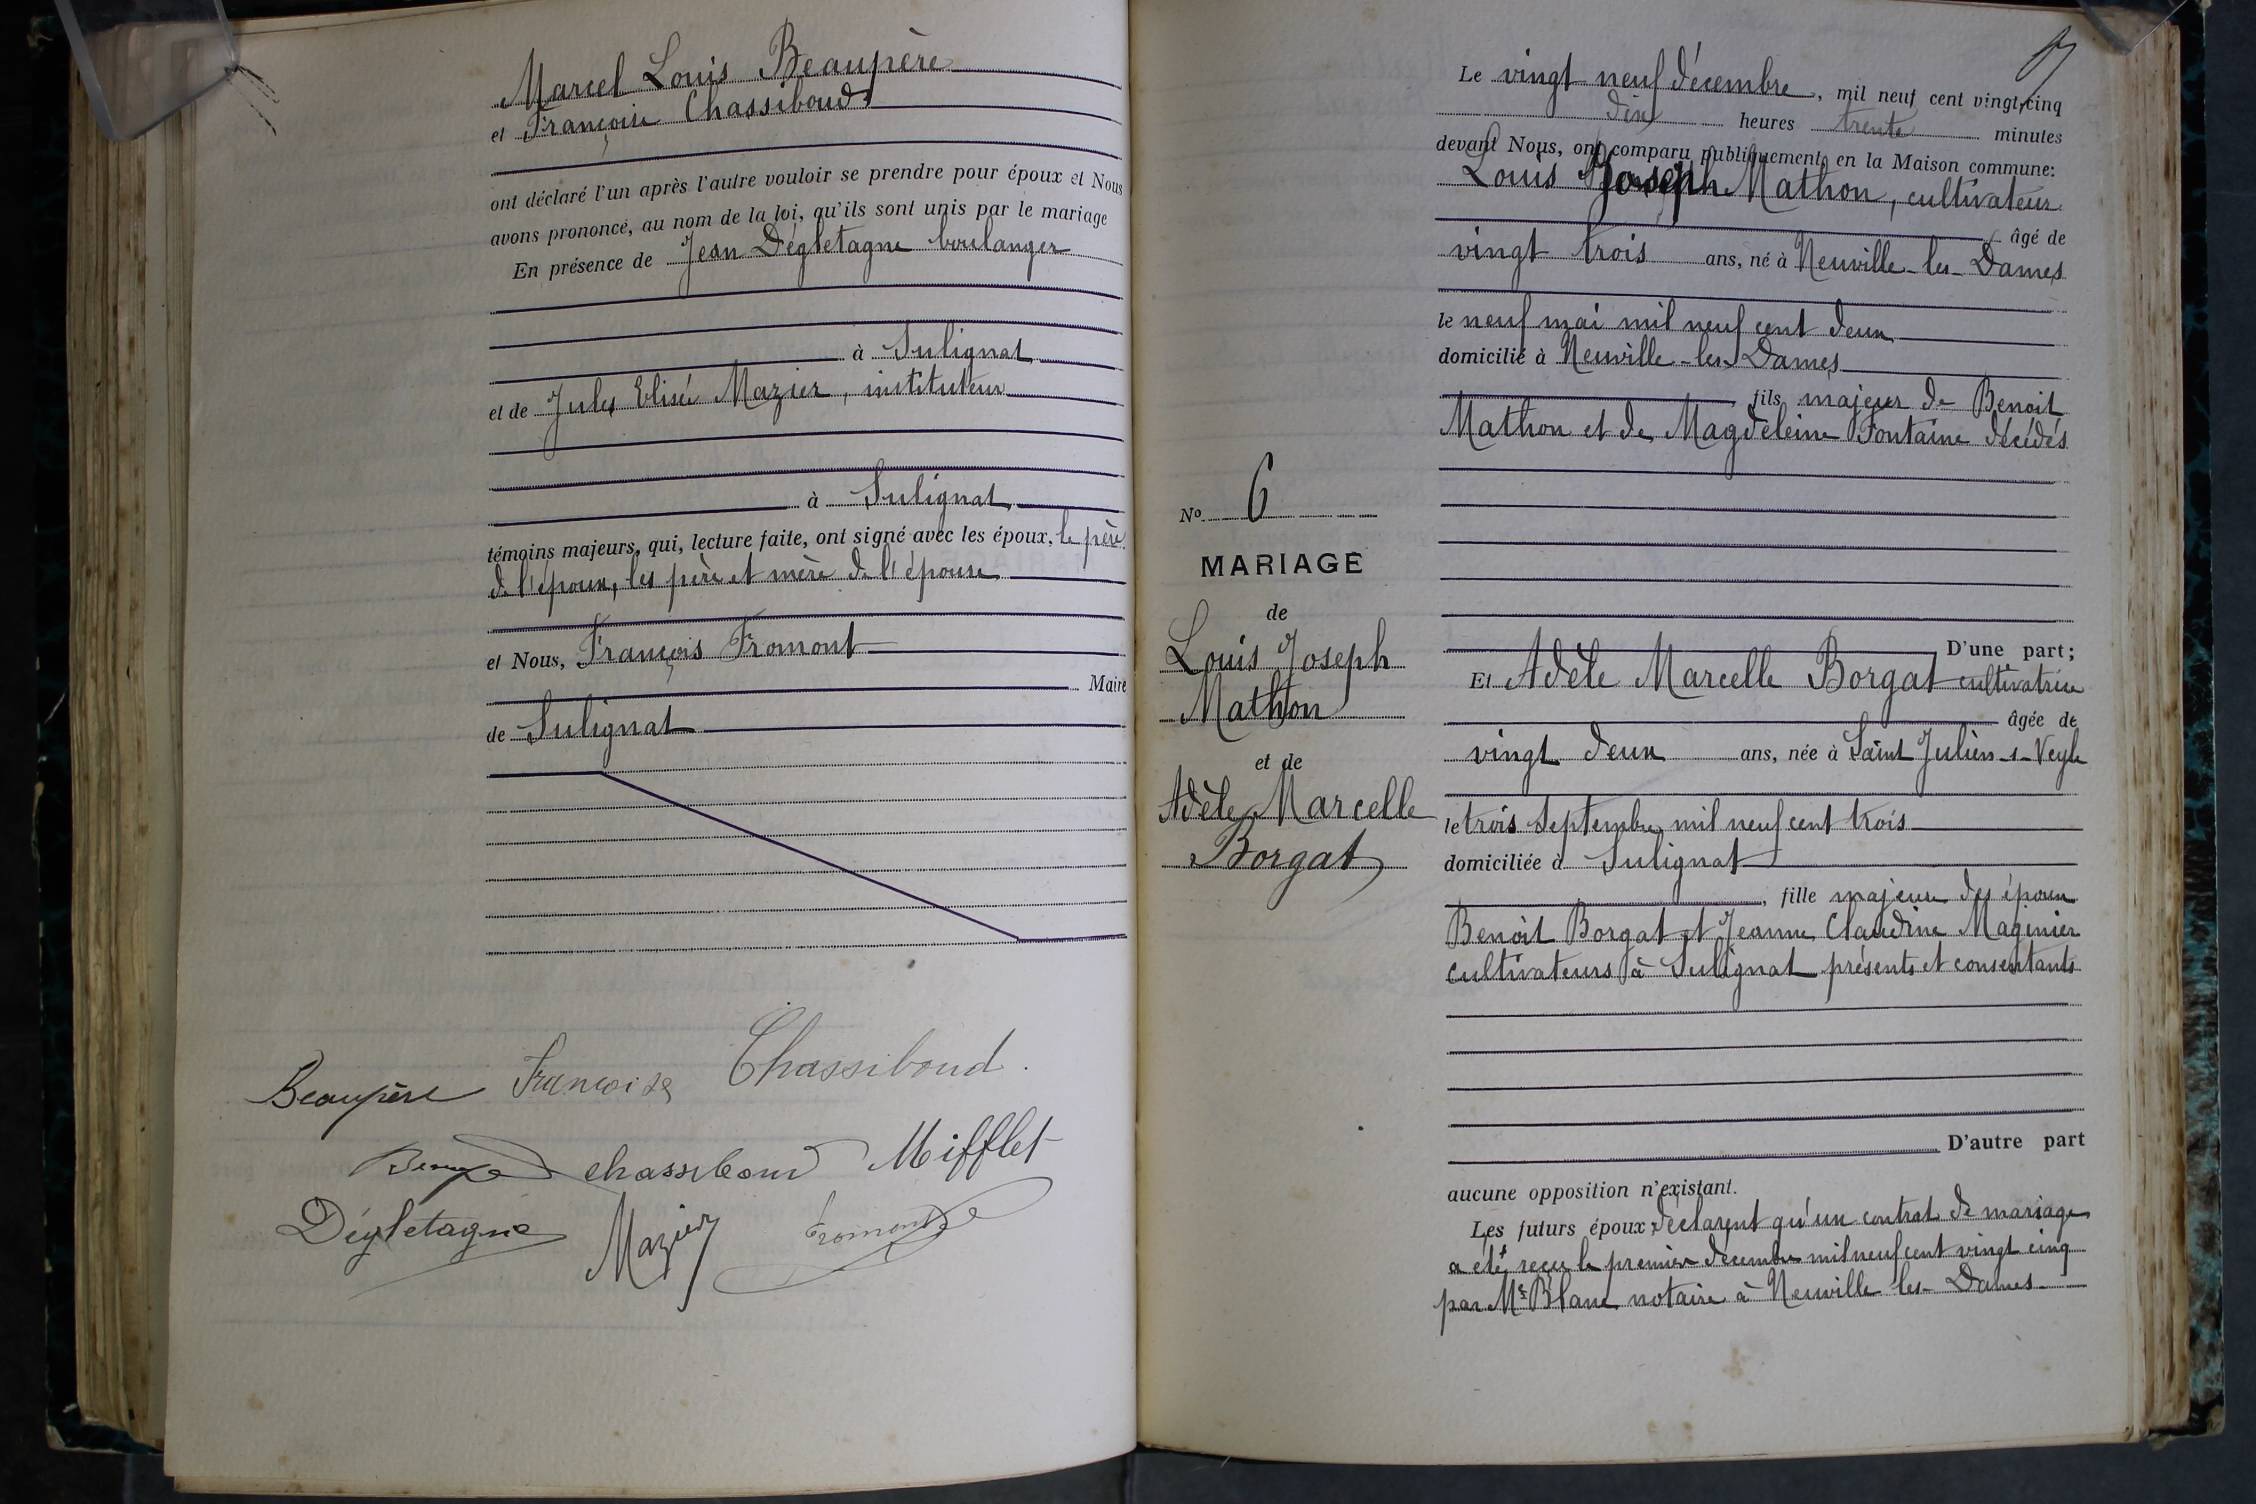 Marcel Louis Beaupère
et Françoise Chassiboud
ont déclaré l'un après l'autre vouloir se prendre pour époux et Nous
avons prononcé, au nom de la loi, qu'ils sont unis par le mariage
En présence de Jean Dégletagne boulanger
à Sulignat
et de Jules Elisée Mazier, instituteur
à Sulignat
témoins majeurs, qui, lecture faite, ont signé avec les époux, le père
de l'époux, les père et mère de l'épouse
et Nous, François Fromont
Maire
de Sulignat
Beaupère Françoise Chassiboud
chassiboud Mifflet
Dégletagne Mazier Fromont
Le vingt neuf décembre, mil neuf cent vingt-cinq
dix heures trente minutes
devant Nous, ont comparu publiquement en la Maison commune:
Louis Joseph Mathon, cultivateur
âgé de
vingt trois ans, né à Neuville-les-Dames
le neuf mai mil neuf cent deux
domicilié à Neuville-les-Dames
fils majeur de Benoit
Mathon et de Magdeleine Fontaine décédés
D'une part;
Et Adèle Marcelle Borgat cultivatrice
âgée de
vingt deux ans, née à Saint Julien-s-Veyle
le trois septembre mil neuf cent trois
domiciliée à Sulignat
, fille majeure des époux
Benoit Borgat et Jeanne Claudine Maginier
cultivateurs à Sulignat présents et consentants
D'autre part
aucune opposition n'existant.
Les futurs époux déclarent qu'un contrat de mariage
a été reçu le premier décembre mil neuf cent vingt cinq
par Me Blanc notaire à Neuville les-Dames
No 6
MARIAGE
de
Louis Joseph
Mathon
et de
Adèle Marcelle
Borgat